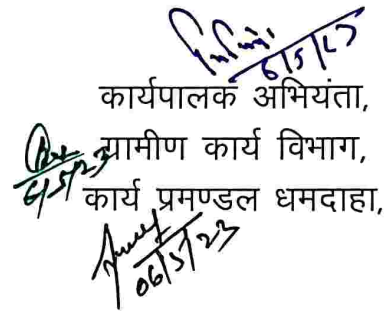 6/5/23
कार्यपालक अभियंता,
ग्रामीण कार्य विभाग,
6/5/23
कार्य प्रमण्डल धमदाहा,
06/5/23